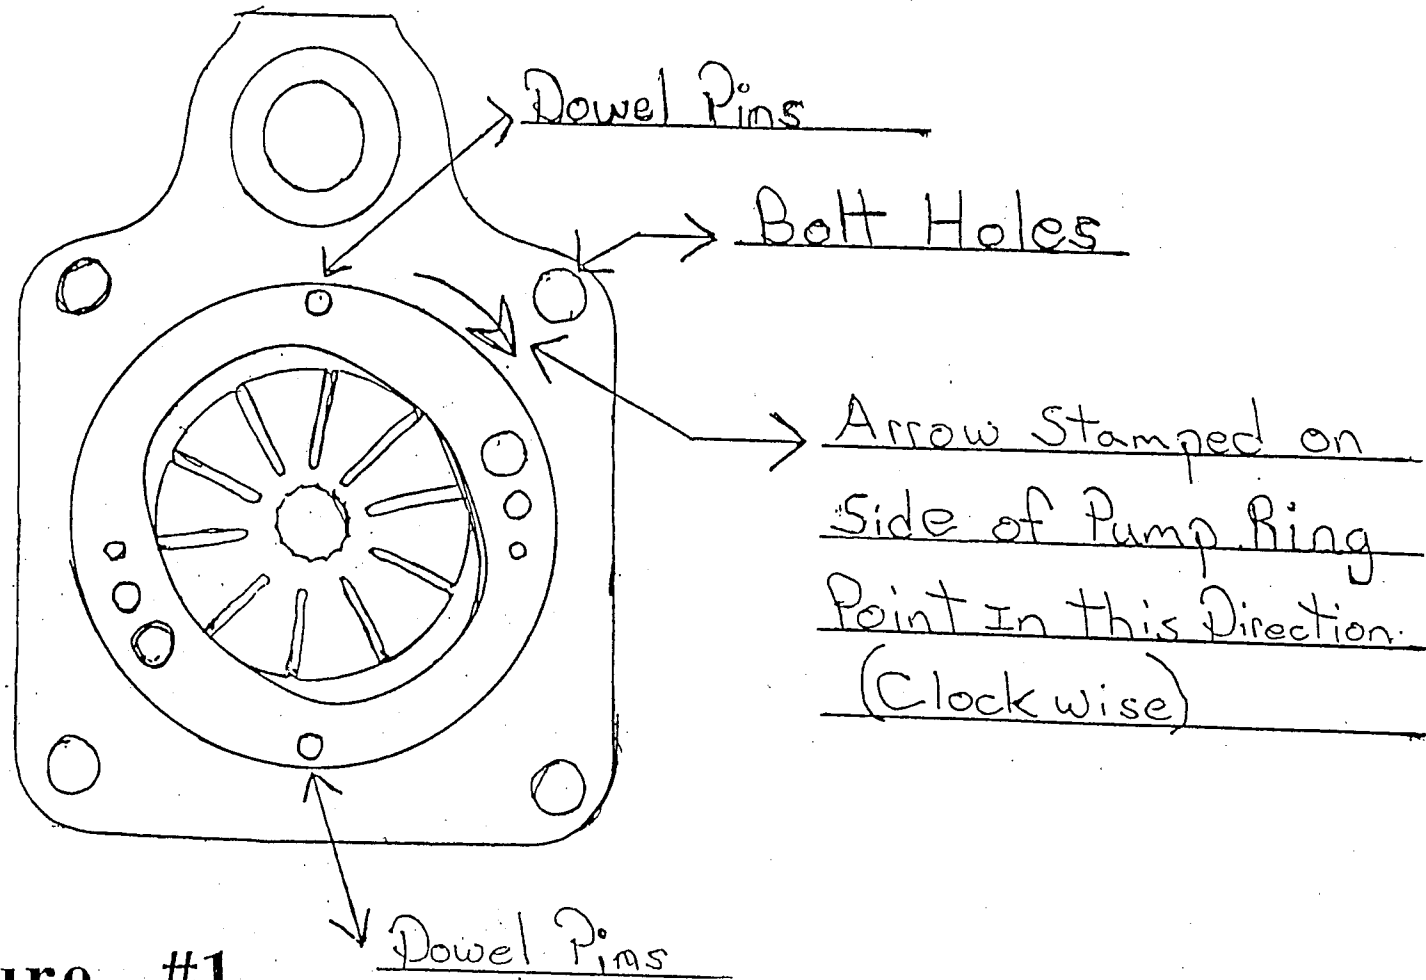 Dowel Pins
Bolt Holes
Arrow Stamped on
Side of Pump Ring
Point In this Direction.
(Clockwise)
Dowel Pins
#1